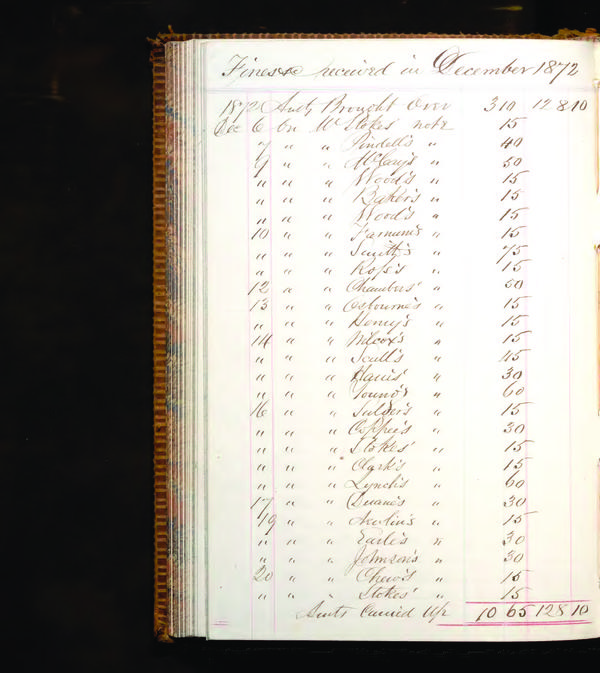 Fines received in December 1872
1872 Amts Brought Over 3 10 128 10
Dec 6 On Mr Stokes' note 15
7 " " Pindell's " 40
9 " " McCary's " 50
" " " Wood's " 15
" " " Baker's " 15
" " " Wood's " 15
10 " " Farnum's " 15
" " " Smith's " 75
" " " Ross's " 15
12 " " Chambers' " 60
13 " " Osbourne's " 15
" " " Henry's " 15
14 " " Wilcox's " 15
" " " Scull's " 45
" " " " 30
" " " Young's " 60
16 " " " 15
" " " Coppee's " 30
" " " Stokes' " 15
" " " Clark's " 15
" " " Lynch's " 60
17 " " Duane's " 30
19 " " " 15
" " " Earle's " 30
" " " Johnson's " 30
20 " " Chew's " 15
" " " Stokes' " 15
Amts Carried Up 10 65 128 10